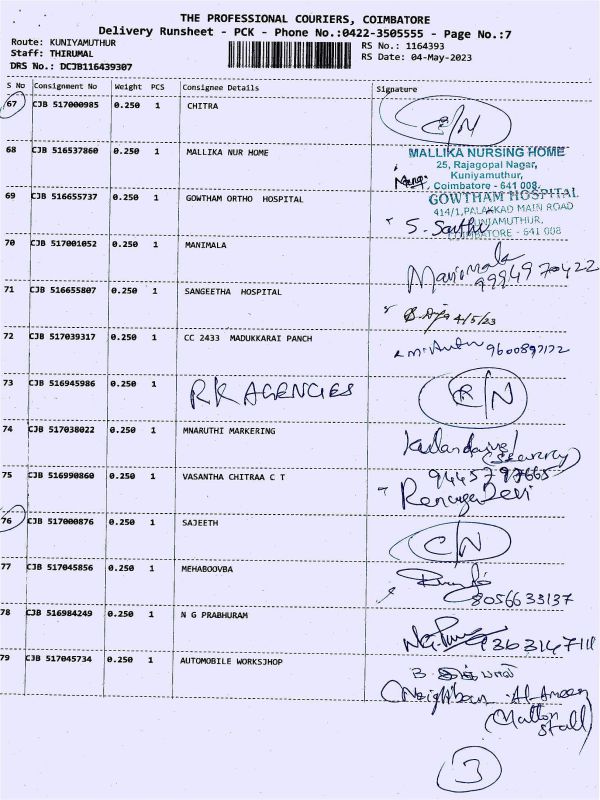 THE PROFESSIONAL COURIERS, COIMBATORE
Delivery Runsheet - PCK - Phone No.:0422-3505555 - Page No.:7
Route: KUNIYAMUTHUR
RS No.: 1164393
Staff: THIRUMAL
RS Date: 04-May-2023
DRS No.: DCJB116439307
S No Consignment No Weight PCS Consignee Details Signature
67 CJB 517000985 0.250 1 CHITRA
68 CJB 516537860 0.250 1 MALLIKA NUR HOME
MALLIKA NURSING HOME
25, Rajagopal Nagar,
Kuniyamuthur,
Coimbatore - 641 008.
69 CJB 516655737 0.250 1 GOWTHAM ORTHO HOSPITAL
GOWTHAM HOSPITAL
414/1, PALAKKAD MAIN ROAD
KUNIAMUTHUR,
COIMBATORE - 641 008
70 CJB 517001052 0.250 1 MANIMALA
Manimala
9994970422
71 CJB 516655807 0.250 1 SANGEETHA HOSPITAL
4/5/23
72 CJB 517039317 0.250 1 CC 2433 MADUKKARAI PANCH
9600897172
73 CJB 516945986 0.250 1 RK AGENCIES
R/N
74 CJB 517038022 0.250 1 MNARUTHI MARKERING
(Security)
9445797665
75 CJB 516990860 0.250 1 VASANTHA CHITRAA C T
Renuga Devi
76 CJB 517000876 0.250 1 SAJEETH
C/N
77 CJB 517045856 0.250 1 MEHABOOVBA
8056633137
78 CJB 516984249 0.250 1 N G PRABHURAM
79 CJB 517045734 0.250 1 AUTOMOBILE WORKSJHOP
Al-Ameen
(Mutton
Stall)
3